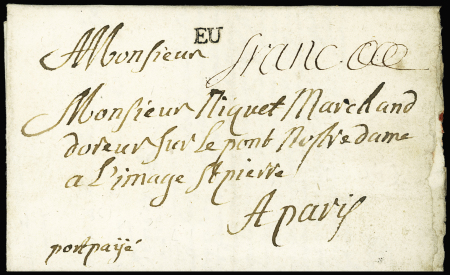 AMonsieur EU franco
Monsieur Niquet Marchand
doreur sur le pont Nostre dame
a L'image St pierre
A paris
port paijé